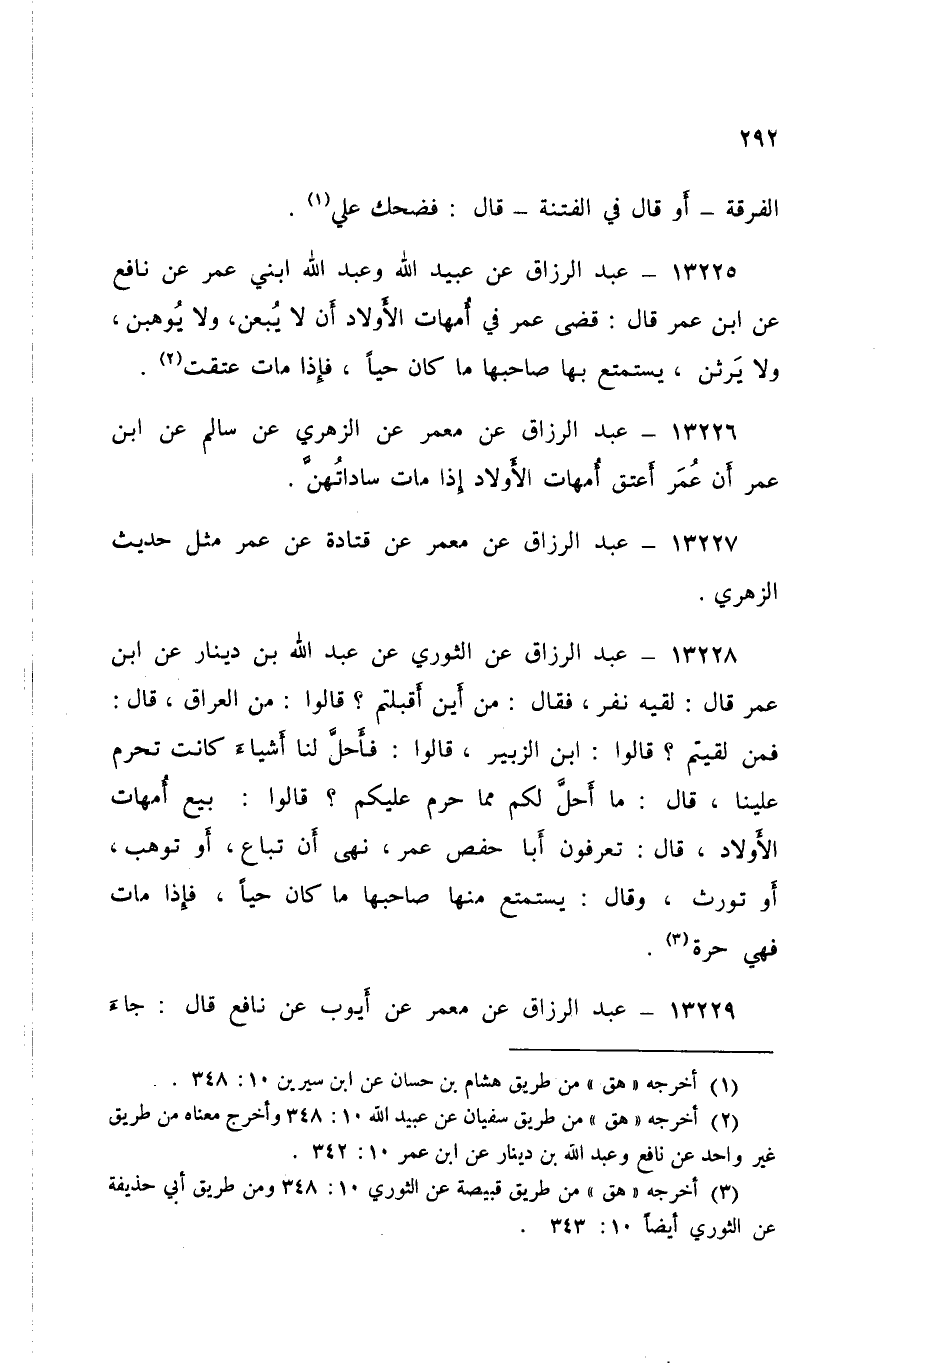 ٢٩٢
الفرقة – أَو قال في الفتنة – قال : فضحك علي(١) .
١٣٢٢٥ – عبد الرزاق عن عبيد الله وعبد الله ابني عمر عن نافع
عن ابن عمر قال : قضى عمر في أُمهات الأَولاد أَن لا يُبعن، ولا يُوهبن ،
ولا يَرثن ، يستمتع بها صاحبها ما كان حياً ، فإذا مات عتقت(٢) .
١٣٢٢٦ – عبد الرزاق عن معمر عن الزهري عن سالم عن ابن
عمر أَن عُمَر أَعتق أُمهات الأَولاد إذا مات ساداتُهنَّ .
١٣٢٢٧ – عبد الرزاق عن معمر عن قتادة عن عمر مثل حديث
الزهري .
١٣٢٢٨ – عبد الرزاق عن الثوري عن عبد الله بن دينار عن ابن
عمر قال : لقيه نفر ، فقال : من أَين أَقبلتم ؟ قالوا : من العراق ، قال :
فمن لقيتم ؟ قالوا : ابن الزبير ، قالوا : فأَحلَّ لنا أَشياءَ كانت تحرم
علينا ، قال : ما أَحلَّ لكم مما حرم عليكم ؟ قالوا : بيع أُمهات
الأَولاد ، قال : تعرفون أَبا حفص عمر ، نهى أَن تباع ، أَو توهب ،
أَو تورث ، وقال : يستمتع منها صاحبها ما كان حياً ، فإذا مات
فهي حرة(٣) .
١٣٢٢٩ – عبد الرزاق عن معمر عن أَيوب عن نافع قال : جاءَ
(١) أخرجه « هق » من طريق هشام بن حسان عن ابن سيرين ١٠ : ٣٤٨ .
(٢) أخرجه « هق » من طريق سفيان عن عبيد الله ١٠ : ٣٤٨ وأخرج معناه من طريق
غير واحد عن نافع وعبد الله بن دينار عن ابن عمر ١٠ : ٣٤٢ .
(٣) أخرجه « هق » من طريق قبيصة عن الثوري ١٠ : ٣٤٨ ومن طريق أبي حذيفة
عن الثوري أيضاً ١٠ : ٣٤٣ .